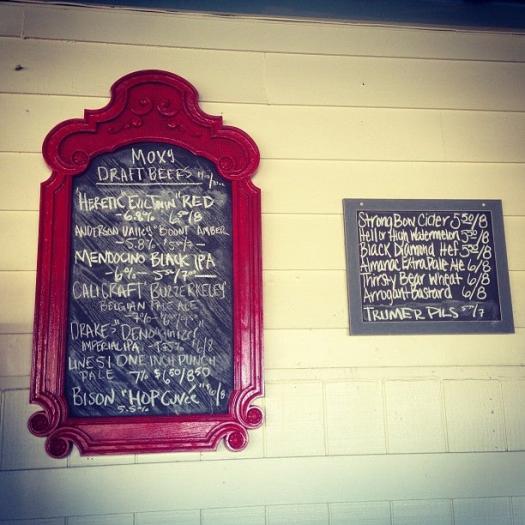 MOXY
DRAFT BEERS
"HERETIC "EVIL TWIN" RED
-6.8%
ANDERSON VALLEY "BOONT AMBER
-5.8%
MENDOCINO BLACK IPA
-6%-
CALICRAFT BUZZERKELEY
BELGIAN PALE ALE
-7%
DRAKE'S "DENOGINIZER
IMPERIAL IPA
LINE 51 ONE INCH PUNCH
PALE 7% $6.50/8.50
BISON "HOP CUVEE"
5.5%
STRONGBOW CIDER 5.50/8
Hell or High Watermelon 5.50/8
Black Diamond Hef 5.50/8
Almanac Extra Pale Ale 6/8
Thirsty Bear Wheat 6/8
Arrogant Bastard 6/8
TRUMER PILS